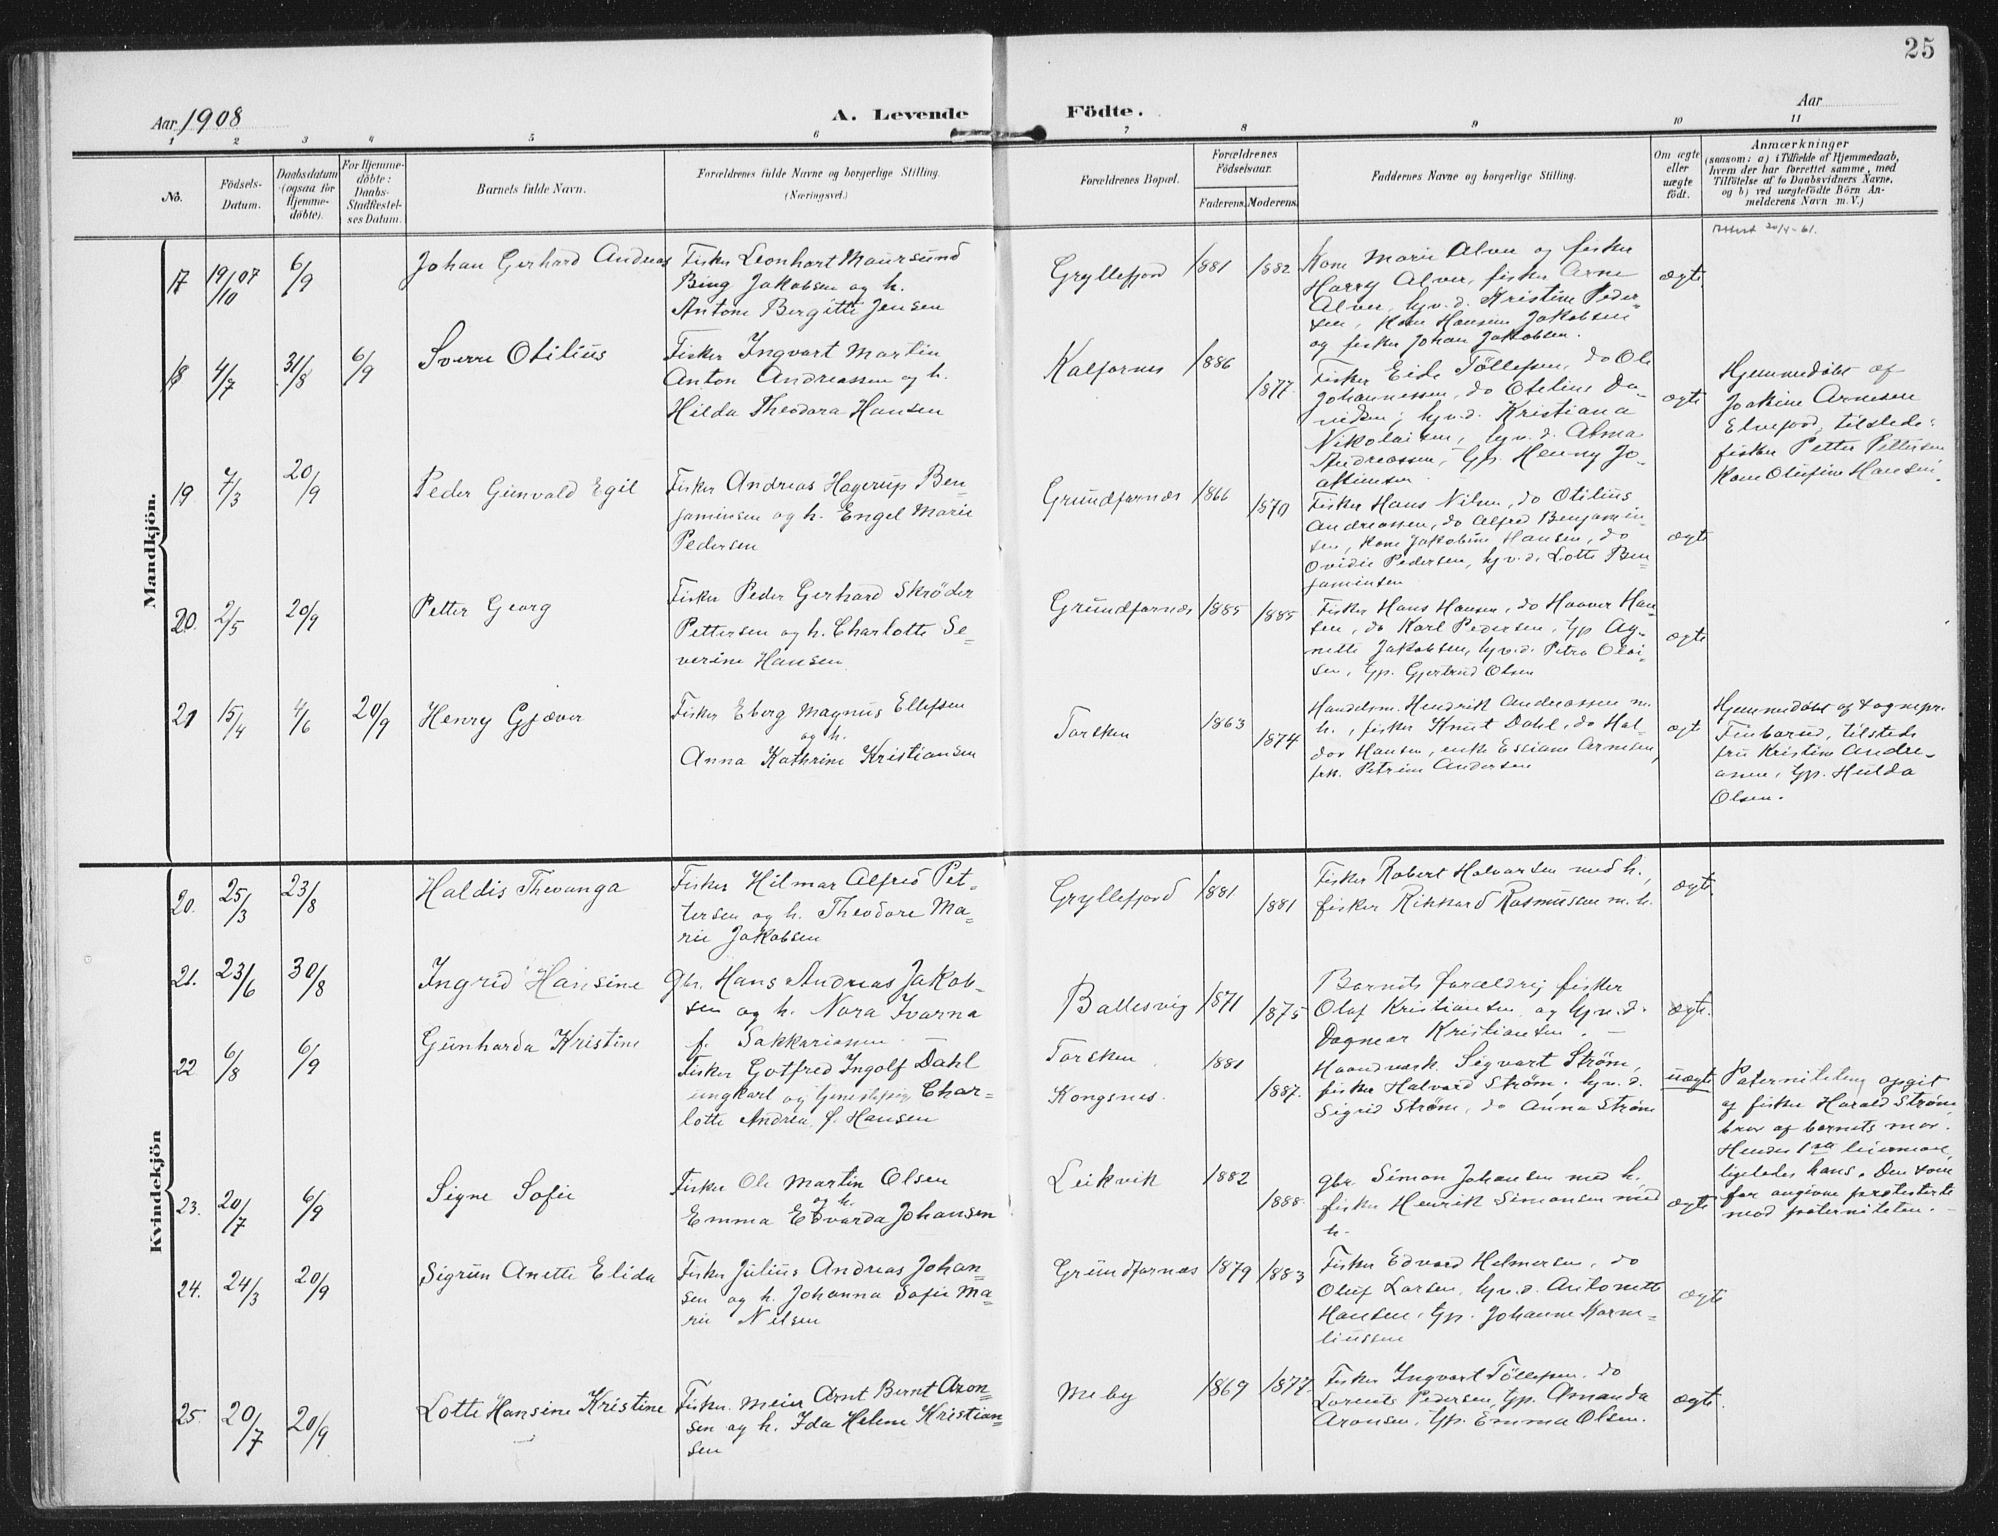 25
Aar 1908
A. Levende Födte.
Aar
1 2 3 4 5 6 7 8 9 10 11
No.
Födsels-Datum.
Daabsdatum (ogsaa for Hjemme-döbte).
For Hjemme-döbte: Daabs-Stadfæstel-ses Datum.
Barnets fulde Navn.
Forældrenes fulde Navne og borgerlige Stilling.
(Næringsvei.)
Forældrenes Bopæl.
Forældrenes Födselsaar.
Faderens. Moderens.
Faddernes Navne og borgerlige Stilling.
Om ægte eller uægte födt.
Anmærkninger
(saasom: a) i Tilfælde af Hjemmedaab,
hvem der har forrettet samme, med
Tilföielse af to Daabsvidners Navne,
og b) ved uægtefödte Börn An-
melderens Navn m. V.)
Mandkjön.
Attest 20/4-61.
17 19/10 07 6/9 Johan Gerhard Andreas Fisker Leonhart Maursund
Bing Jakobsen og h.
Antone Bergitte Jensen
Gryllefjord 1881 1882
Kone Marie Alver og fisker
Harry Alver, fisker Arne
Alver, hv.d. Kristine Peder-
sen, Kone Hansine Jakobsen
og fisker Johan Jakobsen.
ægte
18 4/7 31/8 6/9 Sverre Otilius Fisker Ingvart Martin
Anton Andreassen og h.
Hilda Theodora Hansen
Kalfarnes 1886 1877.
Fisker Eide Töllefsen, do Ole
Johannessen, do Otilius Da-
vidsen, hv.d. Kristiana
Nikolaisen, hv.d. Alma
Andreassen, gp. Henny Jo-
akimsen
ægte
Hjemmedøbt af
Joakim Arnesen
Elvefjord, tilstede:
fisker Petter Pettersen
Kone Olufine Hansen.
19 7/3 20/9 Peder Gunvald Egil Fisker Andreas Hagerup Ben-
jaminsen og h. Engel Marie
Pedersen
Grundfarnes 1866 1870
Fisker Hans Nilsen, do Otilius
Andreassen, do Alfred Benjamin-
sen, Kone Jakobine Hansen, do
Ovidie Pedersen, hv.d. Lotte Ben-
jaminsen
ægte
20. 2/5 20/9 Petter Georg Fisker Peder Gerhard Skröder
Pettersen og h. Charlotte Se-
verine Hansen.
Grundfarnes 1885 1885
Fisker Hans Hansen, do Haaver Han-
sen, do Karl Pedersen, gp Ag-
nette Jakobsen, hv.d. Petra Olai-
sen, gp. Gjertrud Olsen
ægte
21 15/4 4/6 20/9 Henry Gjæver Fisker Eberg Magnus Ellefsen
og h.
Anna Kathrine Kristiansen
Torsken 1863 1874
Handelsm. Hendrik Andreassen m.
h., fisker Knut Dahl, do Hal-
dor Hansen, enke Essiane Arnesen,
frk. Petrine Andersen
ægte
Hjemmedøbt af sognepr.
Finbarud, tilstede
fru Kristine Andre-
asen, gp. Hulda
Olsen.
Kvindekjön
20. 25/3 23/8 Haldis Thevanga Fisker Hilmar Alfred Pet-
tersen og h. Theodore Ma-
rie Jakobsen
Gryllefjord 1881 1881
Fisker Robert Halvarsen med h.,
fisker Rikkard Rasmussen m. h.
ægte.
21. 23/6 30/8 Ingrid Hansine Gbr. Hans Andreas Jakob-
sen og h. Nora Ivarna
f. Sakkariassen
Ballesvig 1871 1875
Barnets forældre, fisker
Oluf Kristiansen og hv.d.
Dagmar Kristiansen.
ægte.
22 6/8 6/9 Gunharda Kristine Fisker Gotfred Ingolf Dahl
ungkarl og Char-
lotte Andrea f. Hansen
Torsken
Kongsnes. 1881 1887.
Haandverk. Sigvart Ström,
fisker Halvard Ström, hv.d.
Sigrid Ström, do Anna Ström
uægte
Paterniteten opgit
af fisker Harald Ström
bror af barnets mor.
Hendes 1ste leiermaal,
ligeledes hans. Den som
far angivne protesterte
mod paterniteten.
23. 20/7 6/9 Signe Sofie Fisker Ole Martin Olsen
og h.
Emma Edvarda Johansen
Leikvik 1882 1888.
Gbr Simon Johansen med h.
fisker Henrik Simonsen med
h.
ægte
24. 24/3 20/9 Sigrun Anette Elida Fisker Julius Andreas Johan-
sen og h. Johanna Sofie Ma-
rie Nilsen
Grundfarnes 1879 1883
Fisker Edvard Helmersen, do
Oluf Larsen, hv.d. Antonette
Hansen, gp. Johanne Korne-
liussen
ægte
25. 20/7 20/9 Lotte Hansine Kristine Fisker Meier Arnt Bernt Aron-
sen og h. Ida Helene Kristian-
sen
Meby 1869 1877.
Fisker Ingvart Töllefsen, do
Lorents Pedersen, gp. Amanda
Aronsen, gp. Emma Olsen.
ægte.